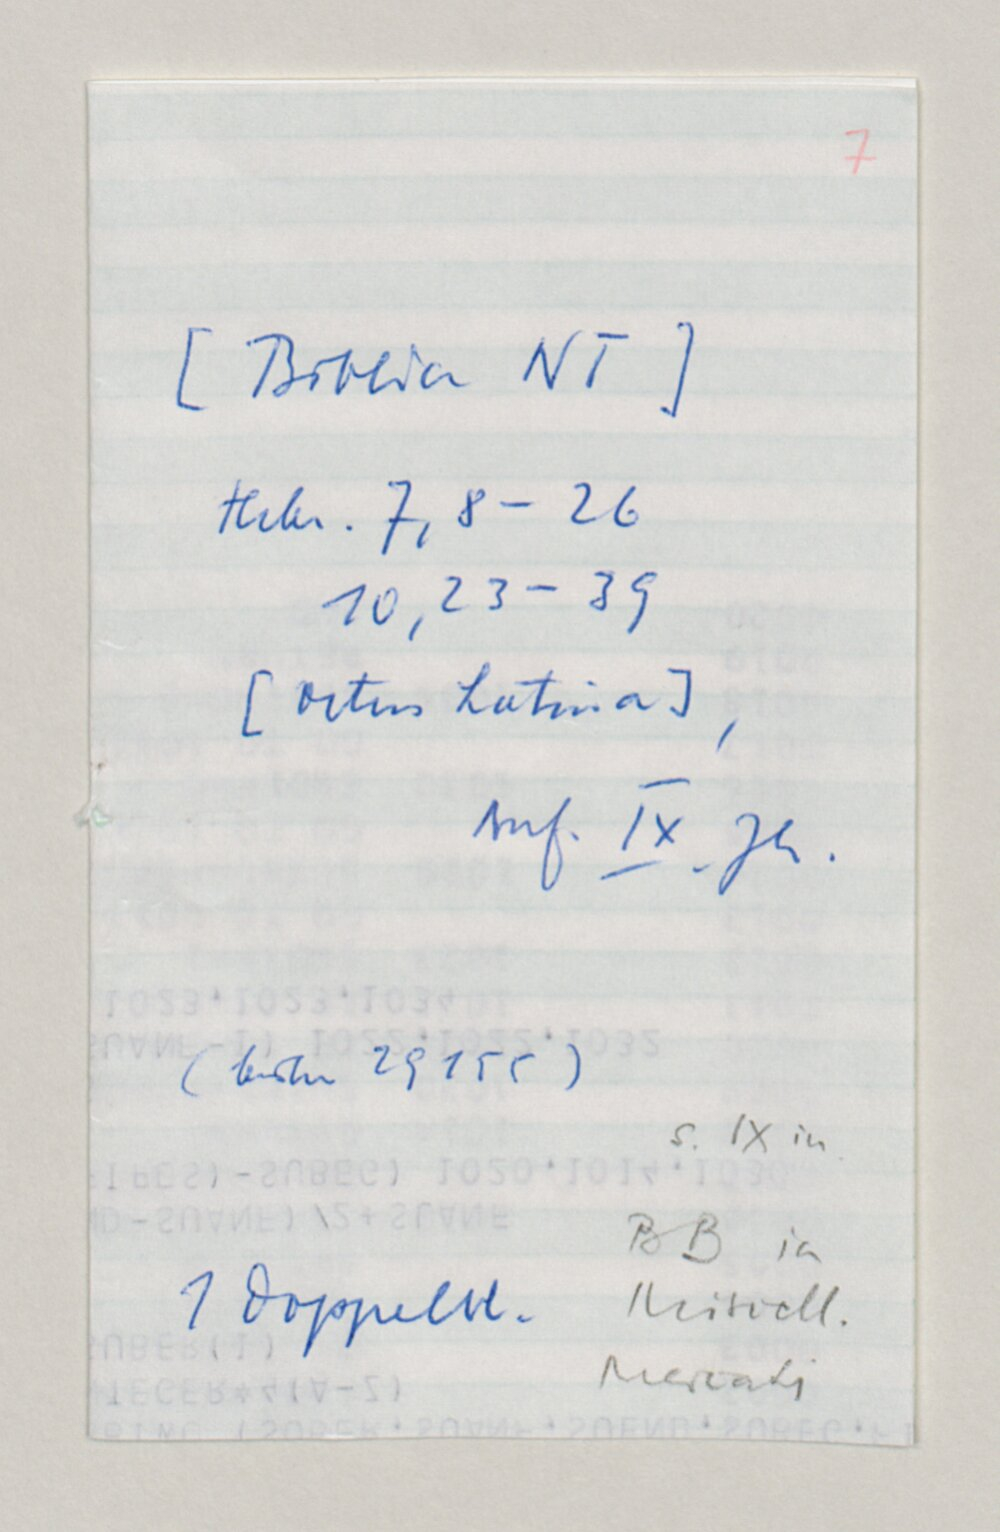 7
[Biblia NT]
Hebr. 7, 8 – 26
10, 23 – 39
[Vetus Latina],
Anf. IX. Jh.
( 29155)
s. IX in.
BB in
1 Doppelbl.
Miscell.
Mercati